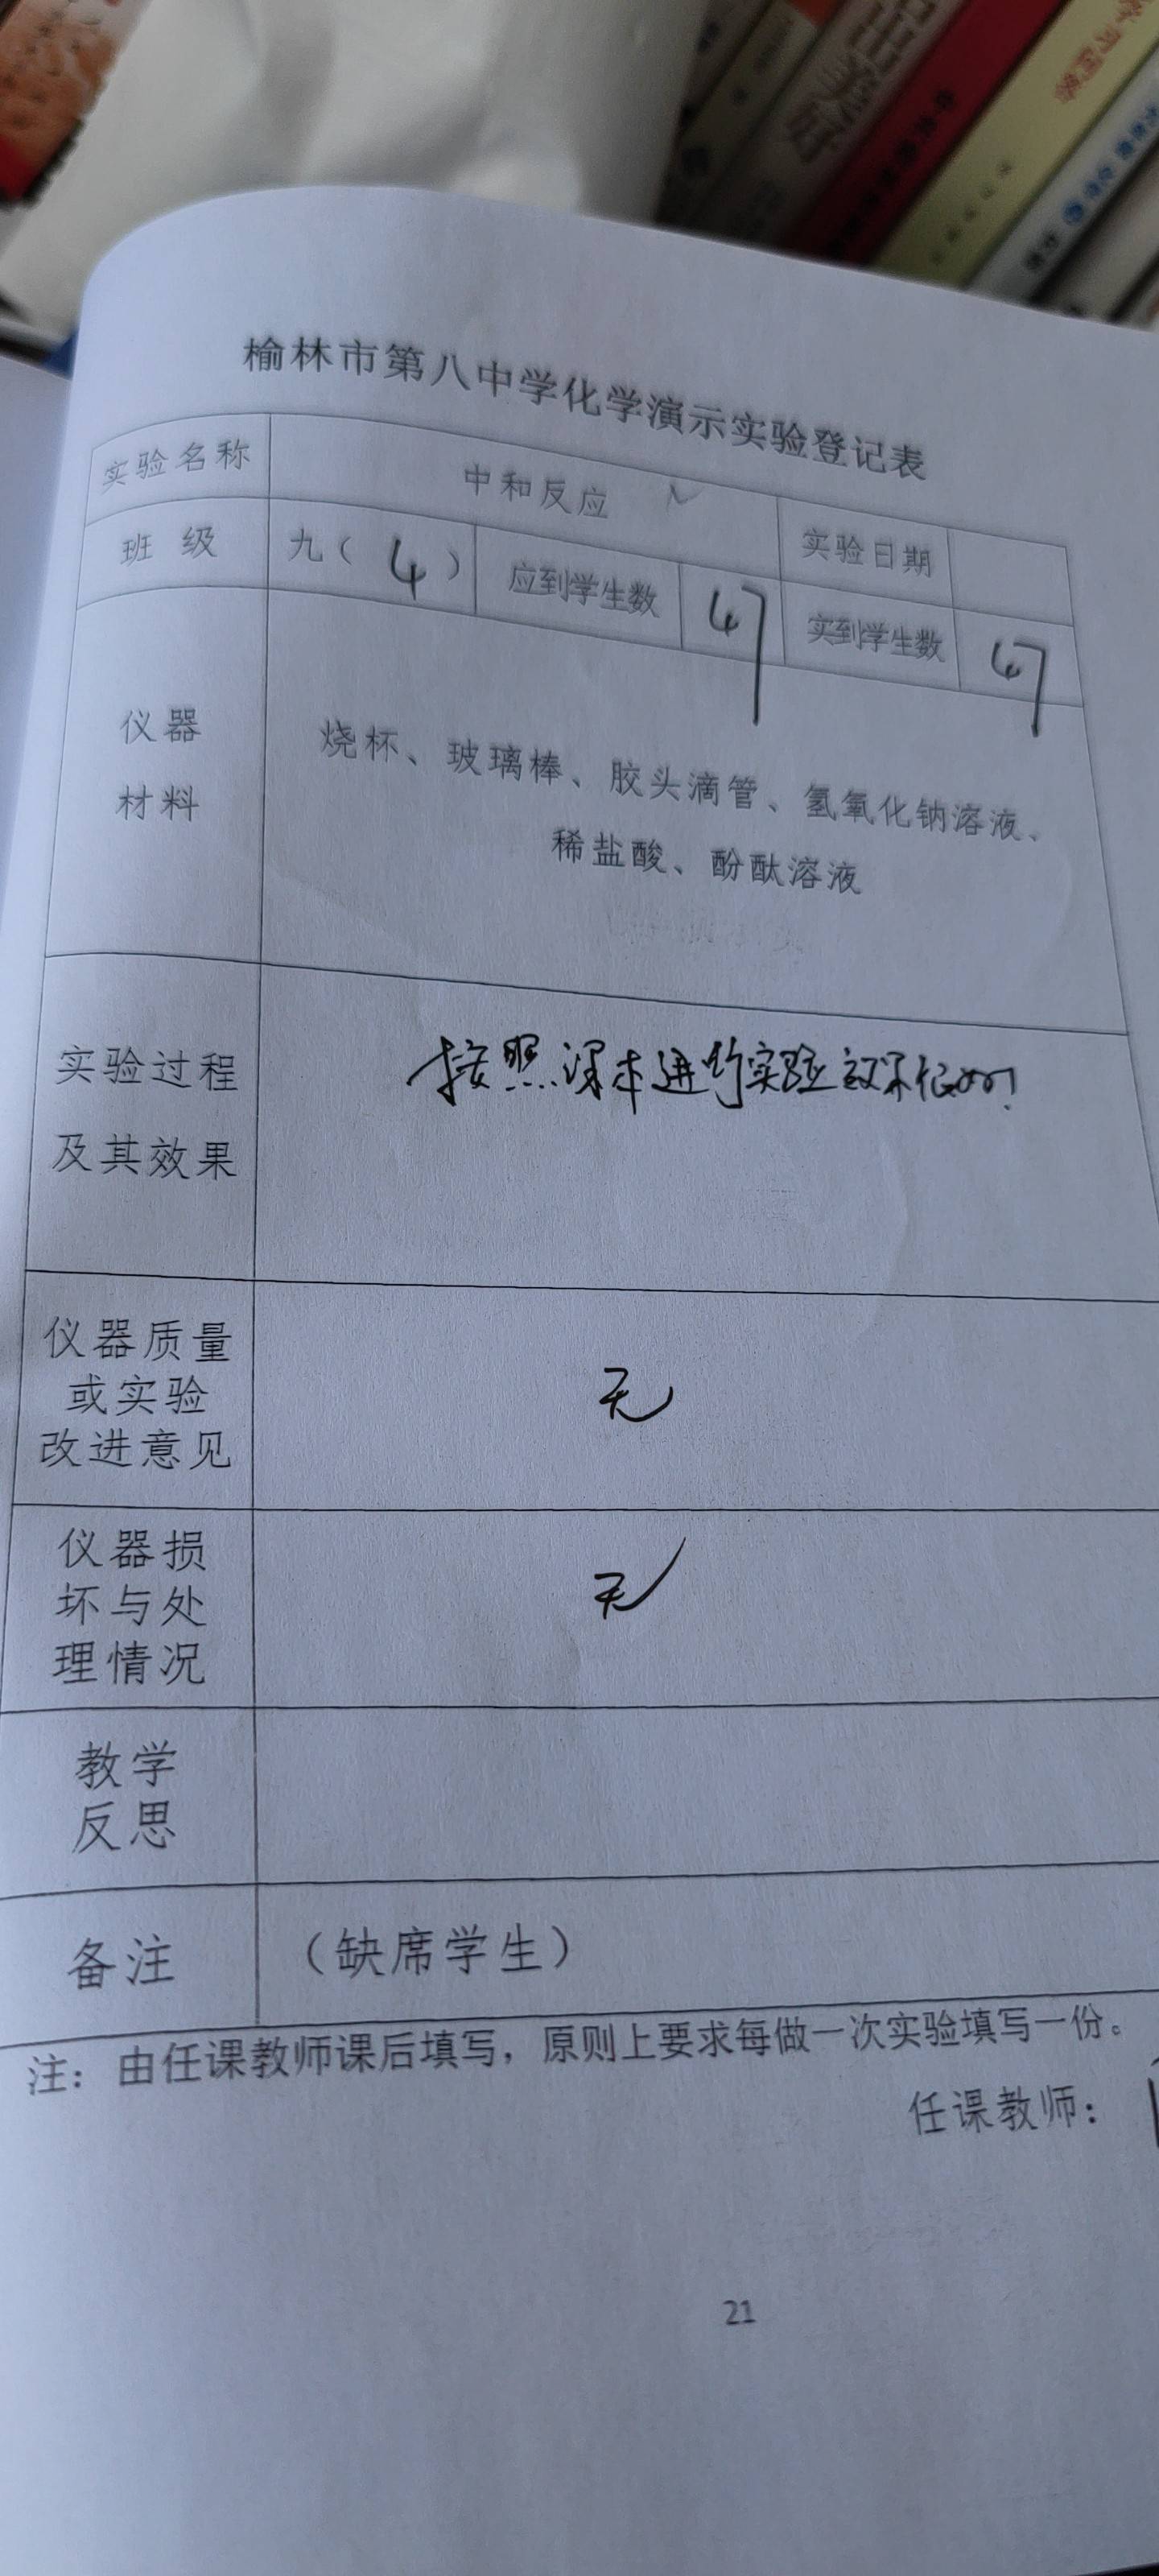 榆林市第八中学化学演示实验登记表
实验名称 中和反应 实验日期
班级 九(4) 应到学生数 47 实到学生数 47
仪器
材料
烧杯、玻璃棒、胶头滴管、氢氧化钠溶液、
稀盐酸、酚酞溶液
实验过程
及其效果
按照课本进行实验效果很好!
仪器质量
或实验
改进意见
无
仪器损
坏与处
理情况
无
教学
反思
备注 (缺席学生)
注:由任课教师课后填写,原则上要求每做一次实验填写一份。
任课教师:
21